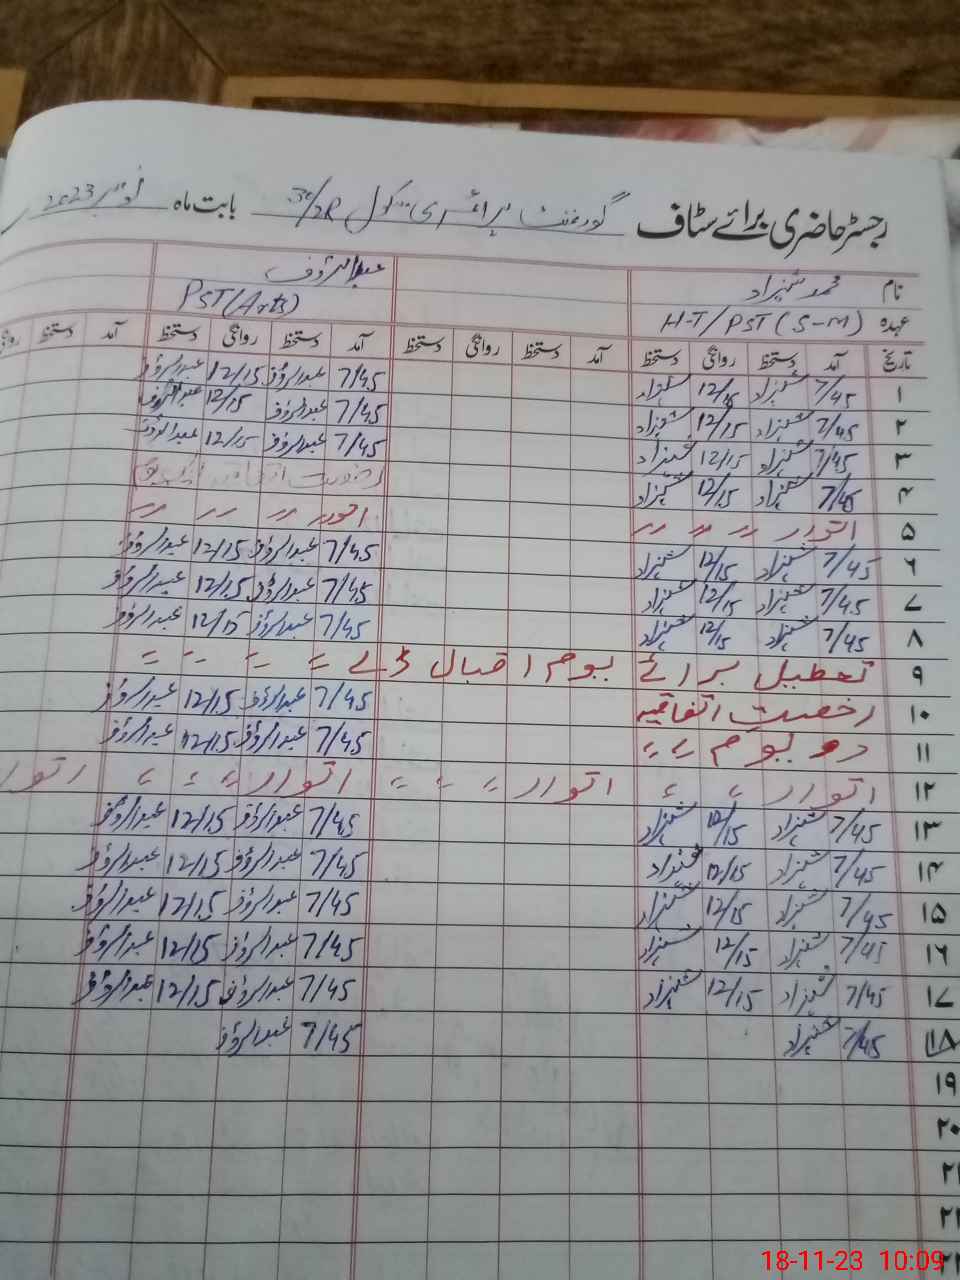 رجسٹر حاضری برائے سٹاف گورنمنٹ پرائمری سکول 30/2R بابت ماہ نومبر 2023
نام محمد شہزاد عبدالرؤف
عہدہ H-T/PST (S-M) PST (Arts)
تاریخ آمد دستخط روانگی دستخط آمد دستخط روانگی دستخط آمد دستخط روانگی دستخط آمد دستخط
۱ 7/45 شہزاد 12/15 شہزاد 7/45 عبدالرؤف 12/15 عبدالرؤف
۲ 7/45 شہزاد 12/15 شہزاد 7/45 عبدالرؤف 12/15 عبدالرؤف
۳ 7/45 شہزاد 12/15 شہزاد 7/45 عبدالرؤف 12/15 عبدالرؤف
۴ 7/45 شہزاد 12/15 شہزاد رخصت اتفاقیہ
۵ اتوار 〃 〃 〃 اتوار 〃 〃 〃
۶ 7/45 شہزاد 12/15 شہزاد 7/45 عبدالرؤف 12/15 عبدالرؤف
۷ 7/45 شہزاد 12/15 شہزاد 7/45 عبدالرؤف 12/15 عبدالرؤف
۸ 7/45 شہزاد 12/15 شہزاد 7/45 عبدالرؤف 12/15 عبدالرؤف
۹ تعطیل برائے یوم اقبال ڈے 〃 〃 〃 〃
۱۰ رخصت اتفاقیہ 7/45 عبدالرؤف 12/15 عبدالرؤف
۱۱ دو یوم 〃 〃 7/45 عبدالرؤف 12/15 عبدالرؤف
۱۲ اتوار 〃 〃 اتوار 〃 〃 〃 اتوار 〃 〃 〃 اتوار
۱۳ 7/45 شہزاد 12/15 شہزاد 7/45 عبدالرؤف 12/15 عبدالرؤف
۱۴ 7/45 شہزاد 12/15 شہزاد 7/45 عبدالرؤف 12/15 عبدالرؤف
۱۵ 7/45 شہزاد 12/15 شہزاد 7/45 عبدالرؤف 12/15 عبدالرؤف
۱۶ 7/45 شہزاد 12/15 شہزاد 7/45 عبدالرؤف 12/15 عبدالرؤف
۱۷ 7/45 شہزاد 12/15 شہزاد 7/45 عبدالرؤف 12/15 عبدالرؤف
۱۸ 7/45 شہزاد 7/45 عبدالرؤف
۱۹
۲۰
۲۱
18-11-23 10:09